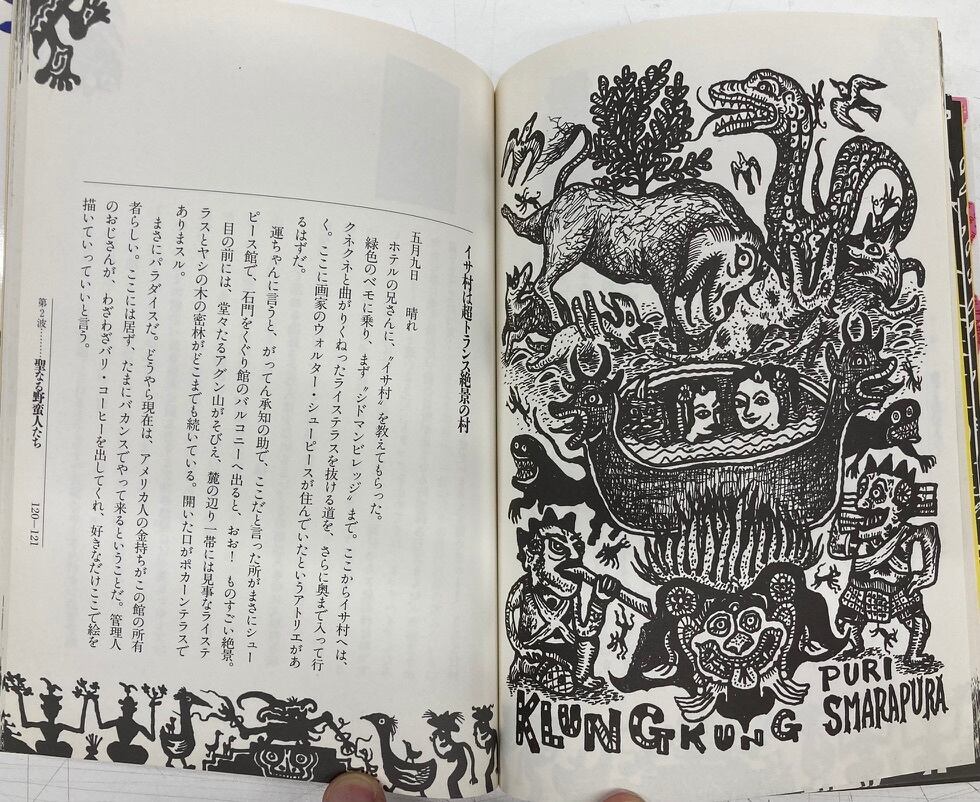 イサ村は超トランス絶景の村
五月九日　晴れ
ホテルの兄さんに、〝イサ村〟を教えてもらった。
緑色のベモに乗り、まず〝シドマンビレッジ〟まで。ここからイサ村へは、
クネクネと曲がりくねったライステラスを抜ける道を、さらに奥まで入って行
く。ここに画家のウォルター・シューピースが住んでいたというアトリエがあ
るはずだ。
運ちゃんに言うと、がってん承知の助で、ここだと言った所がまさにシュー
ピース館で、石門をくぐり館のバルコニーへ出ると、おお！　ものすごい絶景。
目の前には、堂々たるアグン山がそびえ、麓の辺り一帯には見事なライステ
ラスとヤシの木の密林がどこまでも続いている。開いた口がポカーンテラスで
ありまスル。
まさにパラダイスだ。どうやら現在は、アメリカ人の金持ちがこの館の所有
者らしい。ここには居ず、たまにバカンスでやって来るということだ。管理人
のおじさんが、わざわざバリ・コーヒーを出してくれ、好きなだけここで絵を
描いていっていいと言う。
第2波……聖なる野蛮人たち
120—121
KLUNGKUNG
PURI
SMARAPURA